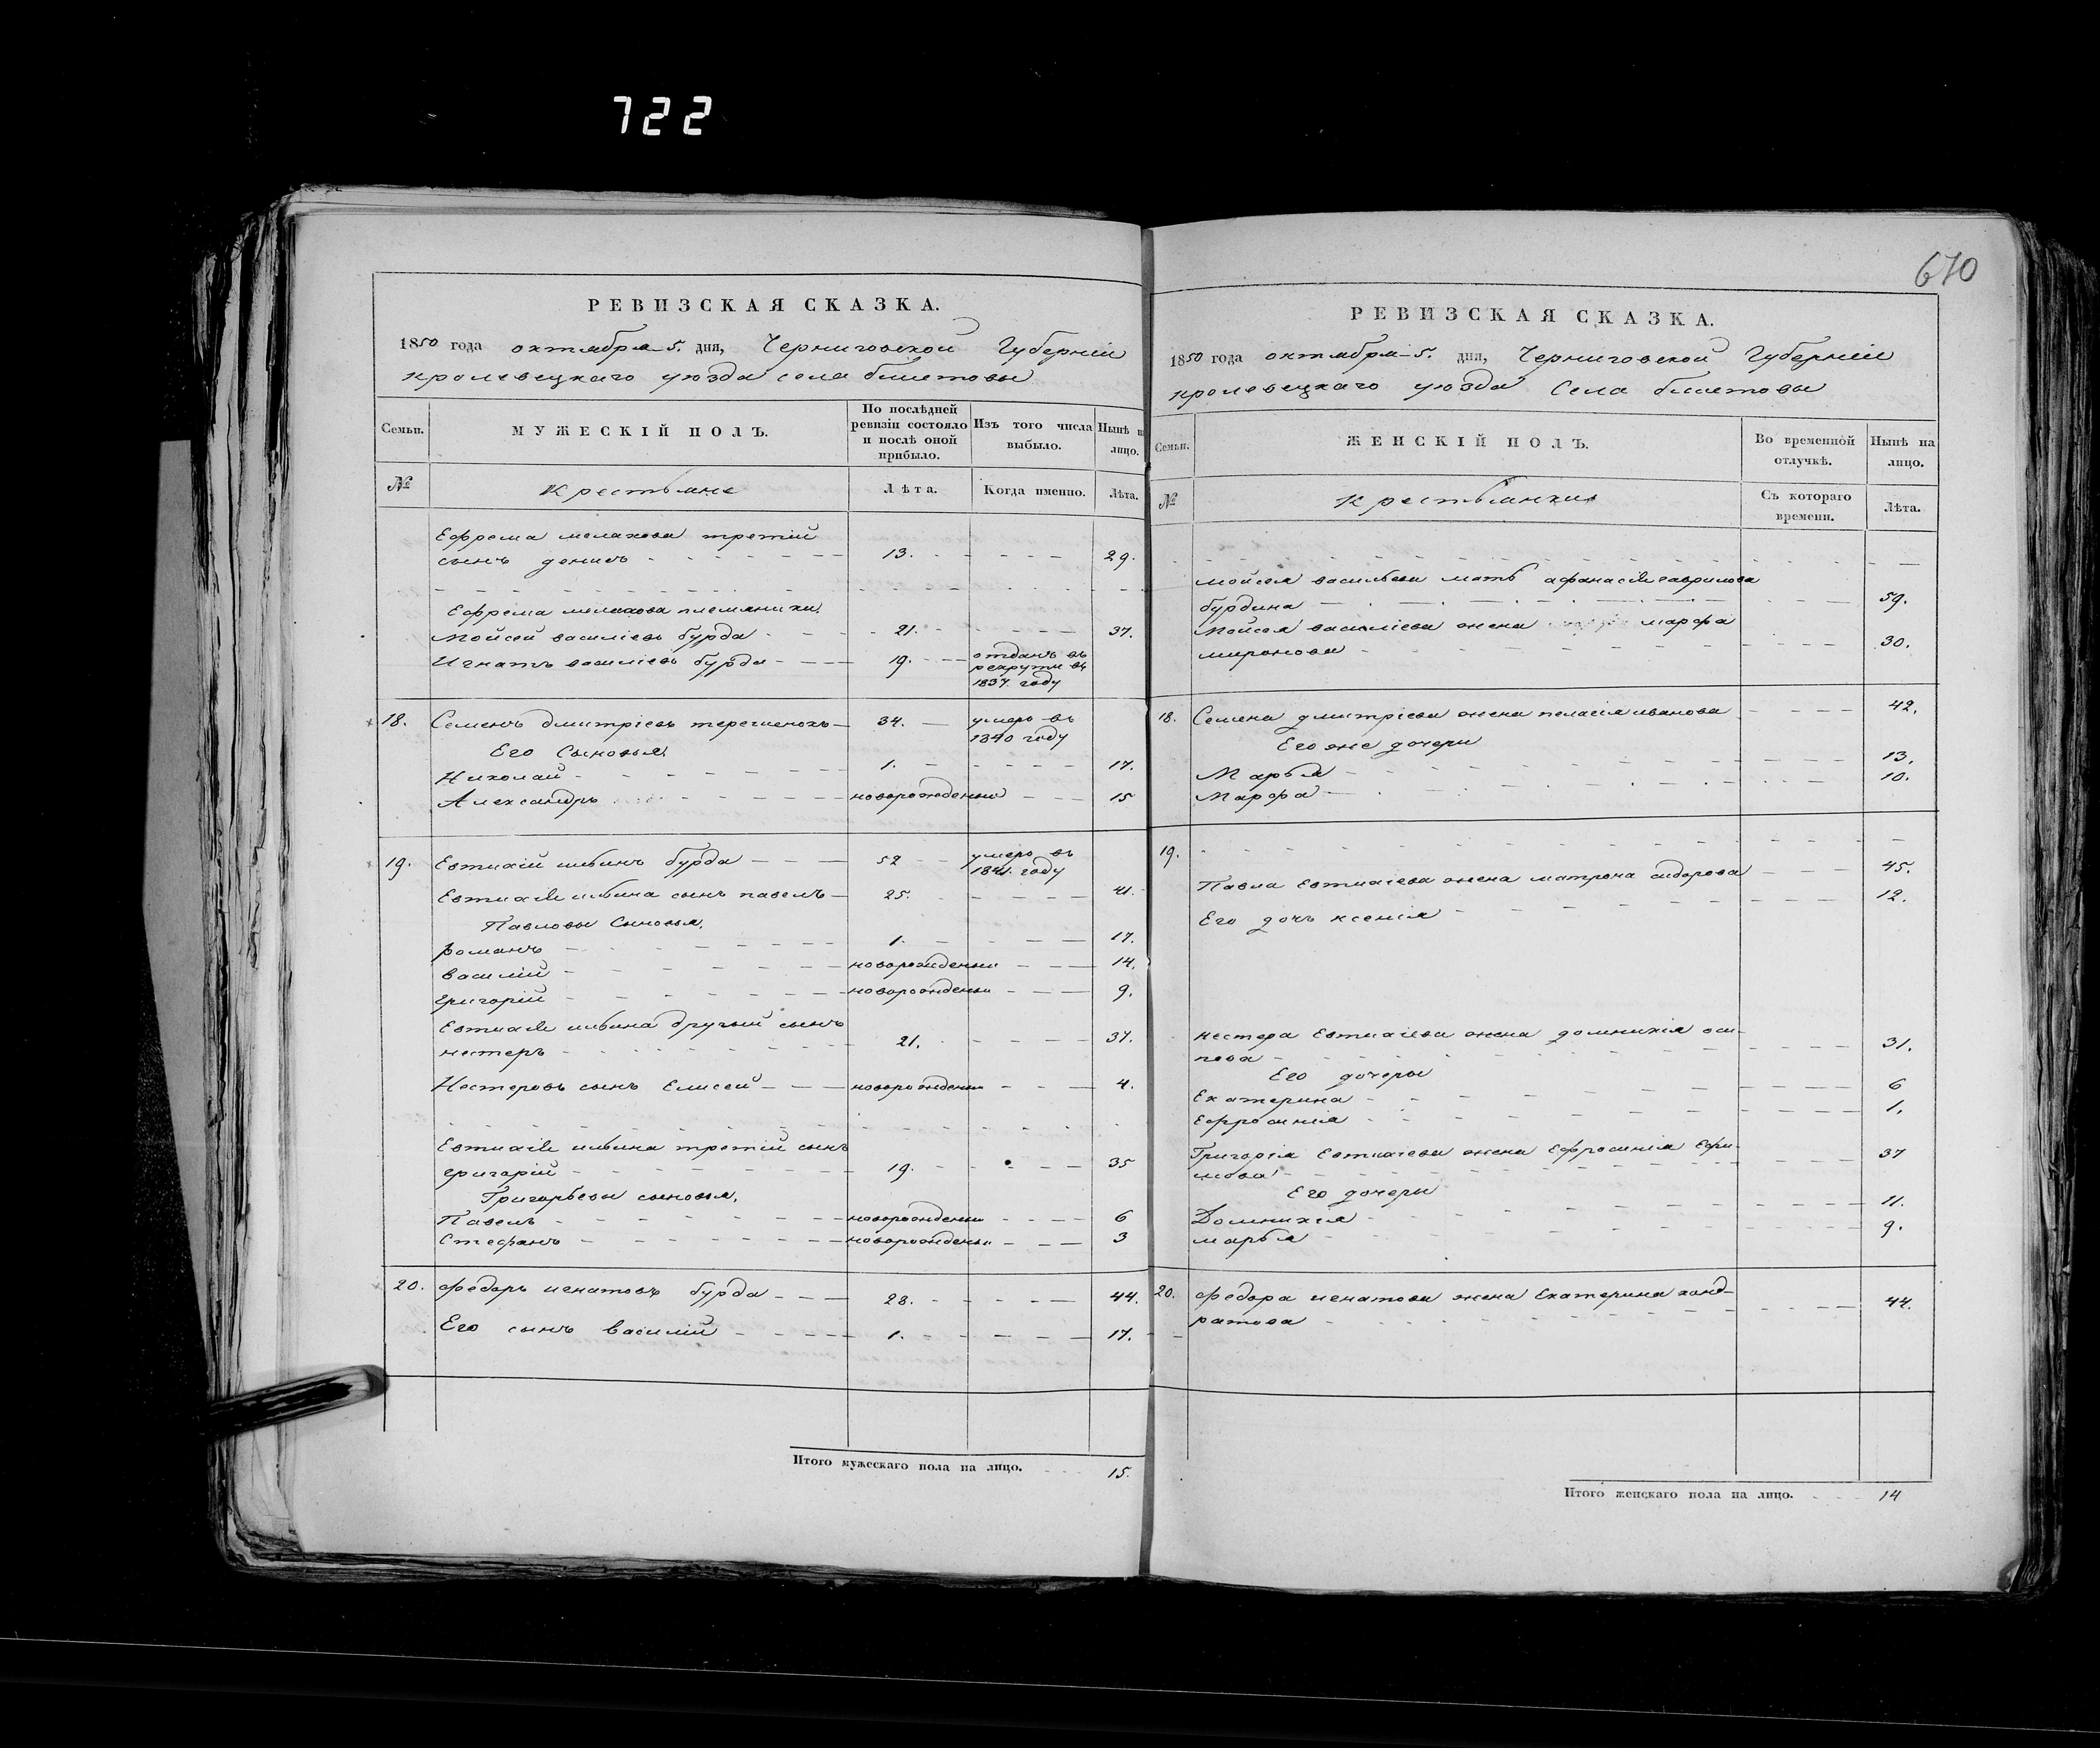 722
670
РЕВИЗСКАЯ СКАЗКА.
1850 года октября 5. дня, Черниговской Губерніи
кролевецкаго уюзда села билетовы
Семьи.
МУЖЕСКІЙ ПОЛЪ.
По послѣдней ревизіи состояло и послѣ оной прибыло.
Изъ того числа выбыло.
Нынѣ на лицо.
№
Крестьяне
Лѣта.
Когда именно.
Лѣта.
Ефрема малахова третій
сынъ денисъ 13. 29.
Ефрема малахова племяники
Мойсей василіевъ бурда 21. 37.
Игнатъ василіевъ бурда 19. отданъ въ
рекруты въ
1837. году
18. Семенъ дмитріевъ терешенокъ 34. умеръ въ
1840 году
Его Сыновья.
Николай 1. 17.
Александръ новорожденый 15
19. Евтихій ильинъ бурда 52 умеръ въ
1841. году
Евтихія ильина сынъ павелъ 25. 41.
Павловы Сыновья.
романъ 1. 17.
василій новорожденый 14.
григорій новорожденый 9.
Евтихія ильина другий сынъ
нестеръ 21. 37.
Нестеровъ сынъ Елисей новорожденый 4.
Евтихія ильина третій сынъ
григорій 19. 35
Григорьевы сыновья.
Павелъ новорожденый 6
Стефанъ новорожденый 3
20. федоръ игнатовъ бурда 28. 44.
Его сынъ василій 1. 17.
Итого мужескаго пола на лицо. 15.
РЕВИЗСКАЯ СКАЗКА.
1850 года октября 5. дня, Черниговской Губерніи
кролевецкаго уюзда Села билетовы
Семьи.
ЖЕНСКІЙ ПОЛЪ.
Во временной отлучкѣ.
Нынѣ на лицо.
№
Крестьянки
Съ котораго времени.
Лѣта.
мойсея васильева мать афанасія гаврилова
бурдина 59.
Мойсея василіева жена марфа
миронова 30.
18. Семена дмитріева жена пелагія иванова 42.
Его же дочери
Марья 13.
Марфа 10.
19.
Павла Евтихіева жена матрона сидорова 45.
Его дочь ксенія 12.
нестера Евтихіева жена домникія оси-
пова 31.
Его дочеры
Екатерина 6
Ефросинія 1.
Григорія Евтихіева жена Ефросинія Ефи-
мова 37
Его дочеры
Домникія 11.
марья 9.
20. федора игнатова жена Екатерина конд-
ратова 44.
Итого женскаго пола на лицо. 14